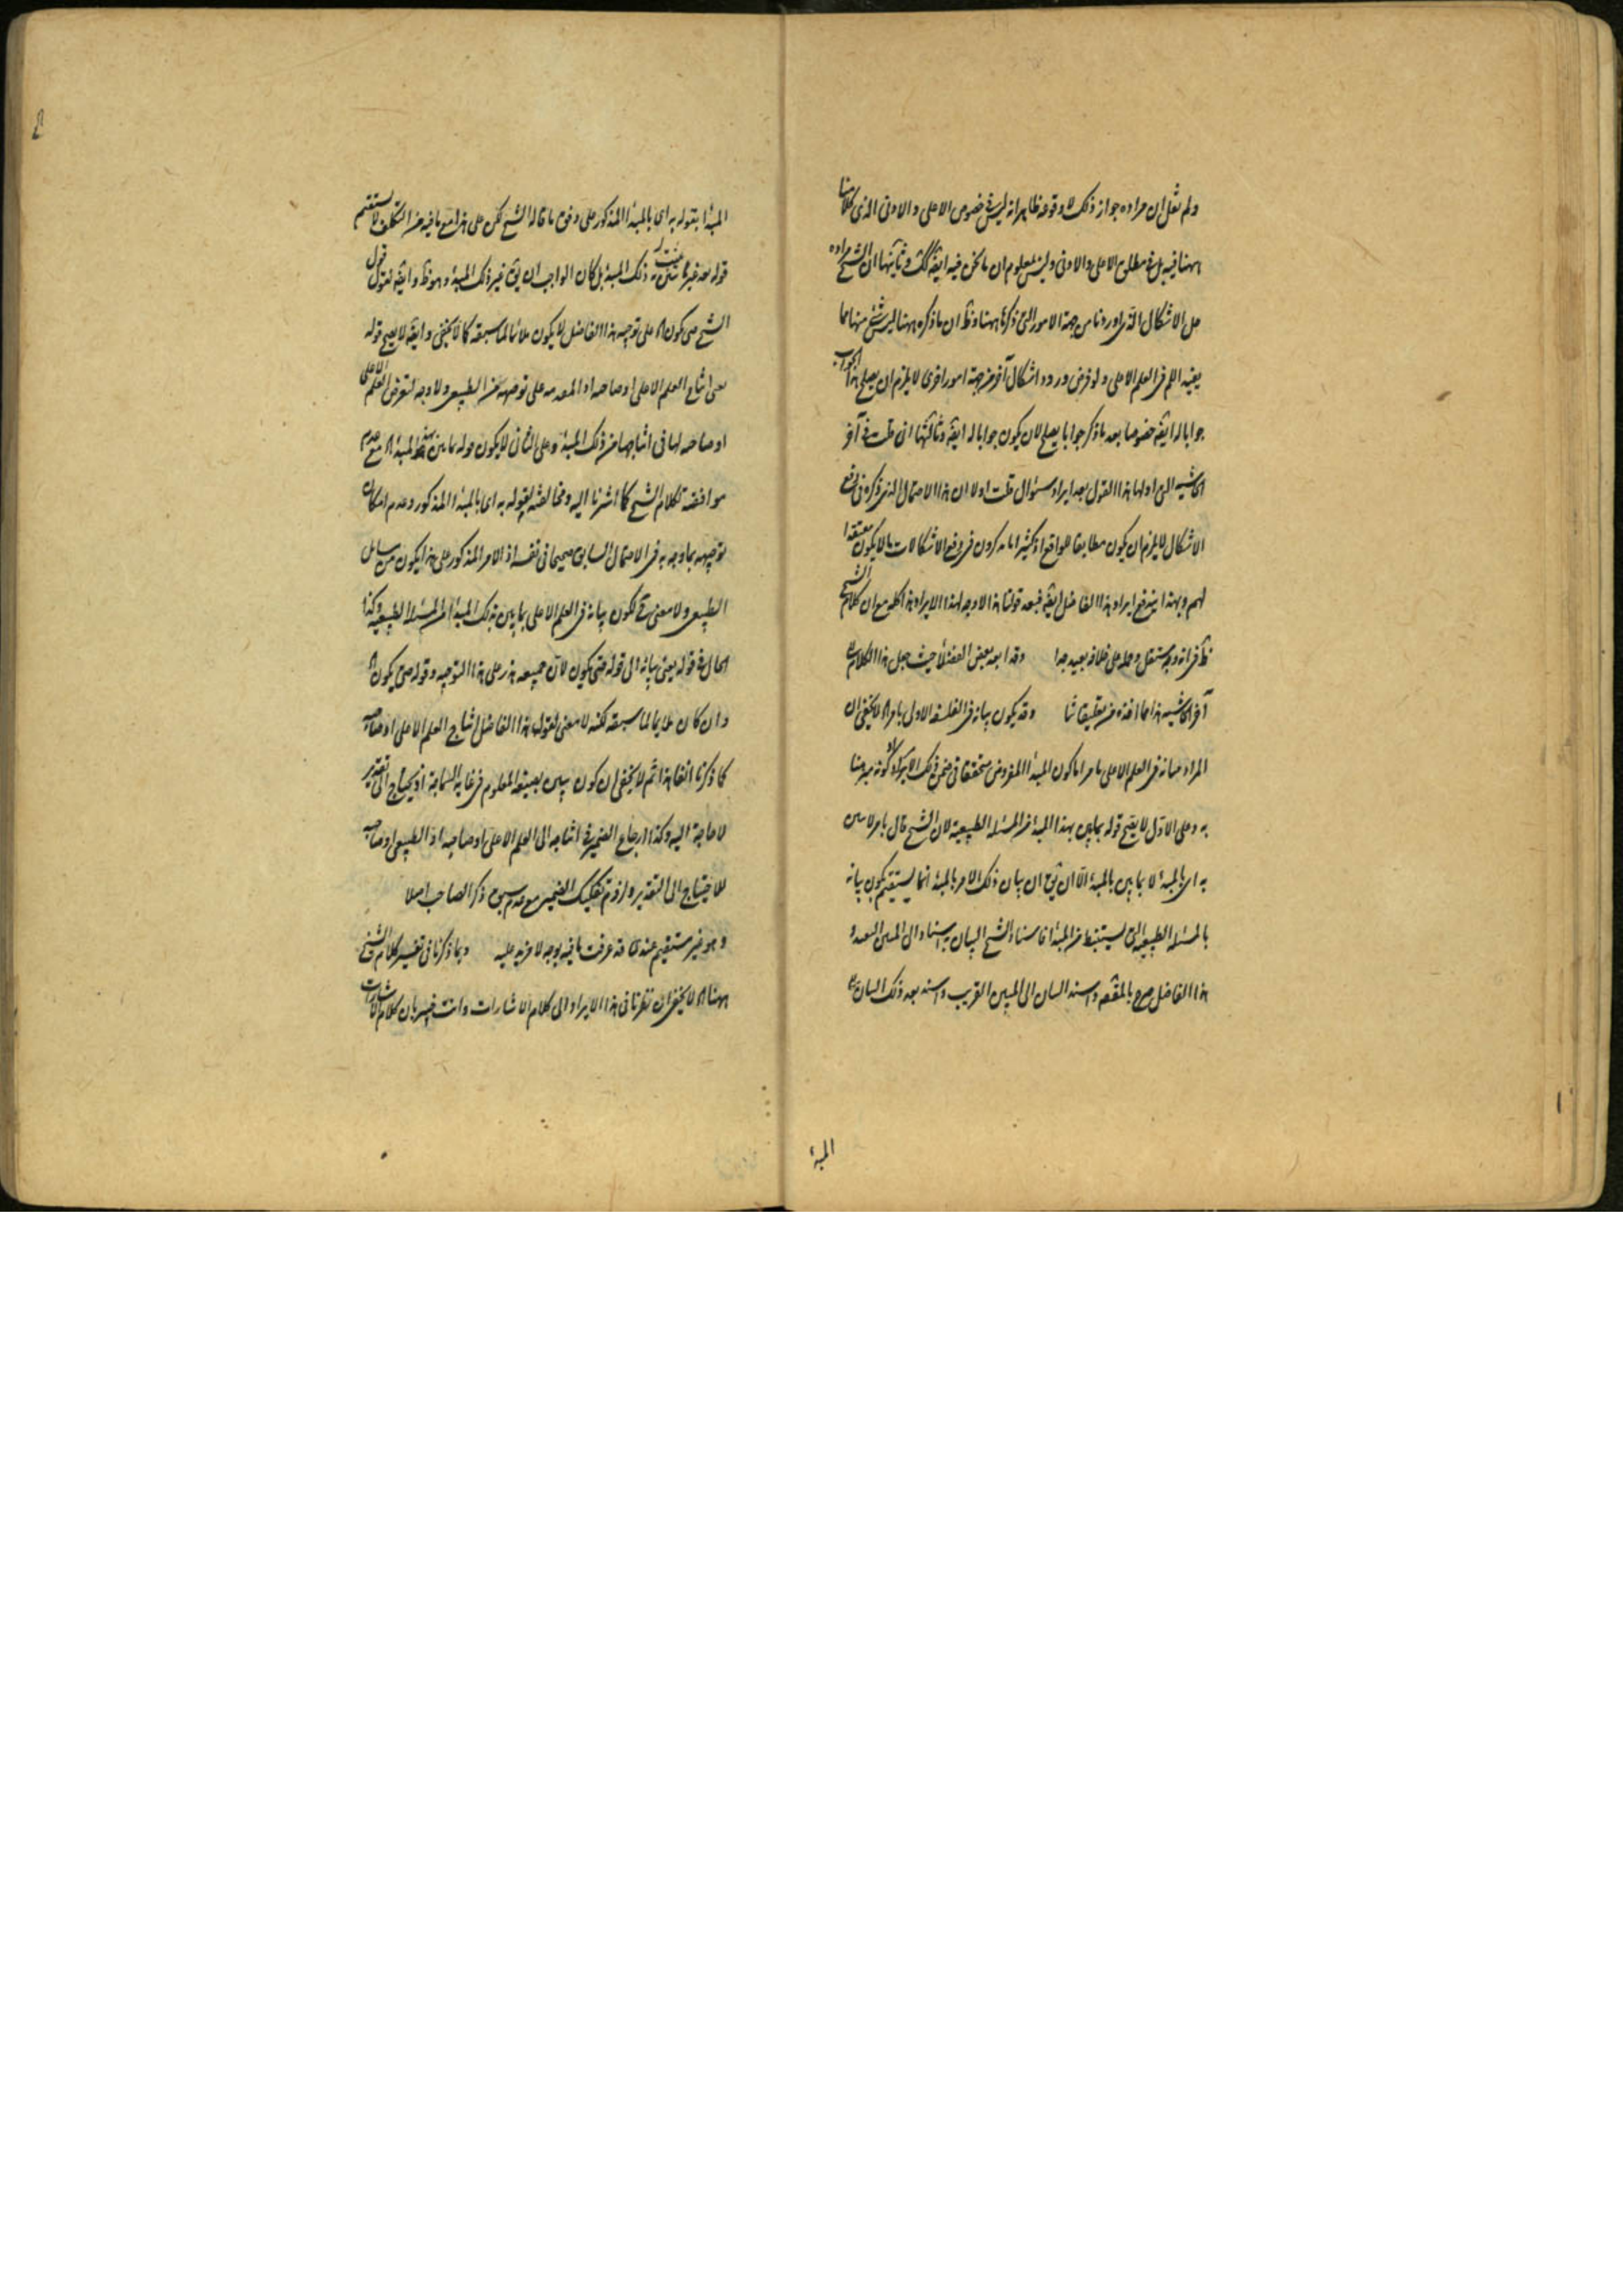 ولم نقل ان مراده جواز ذلك لا وقوعه ظاهرا انه ليس في خصوص الاعلى والادنى الذى كلامنا
ههنا فيه بل في مطلق الاعلى والادنى وليس بمعلوم ان ما نحن فيه ايضا كك وثانيها ان الشيخ مراده
حل الاشكال الذى اوردنا من جهة الامور التى ذكرنا ههنا وظ ان ما ذكره ههنا ليس شئ منها مما
يفيد اللم فى العلم الاعلى ولو فرض ورود اشكال آخر من جهة امور اخرى لا يلزم ان يصلح هذا الجواب
جوابا له ايضا خصوصا بعد ما ذكر جوابا يصلح لان يكون جوابا له ايضا وثالثها انى قلت فى آخر
الحاشيه التى اولها هذا القول بعد ايراد سؤال قلت اولا ان هذا الاحتمال الذى ذكره فى دفع
الاشكال لا يلزم ان يكون مطابقا للواقع اذ كثيرا ما يذكرون فى دفع الاشكالات ما لا يكون معتقدا
لهم وبهذا يندفع ايراد هذا الفاضل ايضا فبعد قولنا هذا لا وجه لهذا الايراد هذا كله مع ان كلام الشيخ
ظ فى انه وجه مستقل وحمله على خلافه بعيد جدا وقد ابعد بعض الفضلاء حيث جعل هذا الكلام
آخر الحاشيه هذا مما افاده من تعليقاتنا وقد يكون بيانه فى الفلسفة الاولى بامر لا يخفى ان
المراد ببيانه فى العلم الاعلى بامر اما كون المبدأ المفروض متحققا فى ضمن ذلك الامر او كونه مبرهنا
به وعلى الاول لا يصح قوله بما يبين بهذا المبدأ من المسئله الطبيعية لان الشيخ قال بامر لا يبين
به اى بالمبدأ لا بما يبين بالمبدأ الا ان يق ان بيان ذلك الامر بالمبدأ انما يستقيم بكون بيانه
بالمسئله الطبيعيه التى يستنبط من المبدأ فاسناد الشيخ البيان به اسناد الى المبين البعيد و
هذا الفاضل صرح بالمقصود واسند البيان الى المبين القريب واسند بعد ذلك البيان
المبدأ
المبدأ بقوله به اى بالمبدأ المذكور على وفق ما قاله الشيخ لكن على هذا مع ما فيه من التكلف لا يستقيم
قوله بعد غير ما يبين منه ذلك المبدأ بل كان الواجب ان يق غير ذلك المبدأ وهو ظ وايضا قول
الشيخ حتى يكون على توجيه هذا الفاضل لا يكون ملائما لما سبقه كما لا يخفى وايضا لا يصح قوله
العلم الاعلى او صاحبه على توجيهه من الطبيعى ولا وجه لتعرض العلم الاعلى
او صاحبه لها فى اثباتها من ذلك المبدأ وعلى الثانى لا يكون قوله بما يبين بهذا المبدأ مع عدم
موافقته لكلام الشيخ كما اشرنا اليه ومخالفته لقوله به اى بالمبدأ المذكور وعدم امكان
توجيهه بما وجه به فى الاحتمال السابق صحيحا فى نفسه اذ الامر المذكور على هذا يكون من مسائل
الطبيعى ولا معنى لكون بيانه فى العلم الاعلى بما يبين بذلك المبدأ من المسئله الطبيعيه وكذا
الحال فى قوله يعنى بيانه الى قوله حتى يكون لان جميعه على هذا التوجيه وقوله حتى يكون
وان كان ملايما لما سبقه لكنه لا معنى لقول هذا الفاضل العلم الاعلى او صاحبه
كما ذكرنا انفا هذا ثم لا يخفى ان كون يبين بصيغة المعلوم فى غايه السماجة اذ يحتاج الى تقدير
لا حاجة اليه وكذا ارجاع الضمير فى الى العلم الاعلى او صاحبه او الطبيعى او صاحبه
للاحتياج الى التقدير ولزوم تفكيك الضمير مع عدم سبق ذكر الصاحب اصلا
وهو غير مستقيم عندى قد عرفت ما فيه بوجه لا مزيد عليه وبما ذكرنا فى تفسير كلام الشيخ
ههنا لا يخفى ان نظرنا فى هذا الايراد الى كلام الاشارات وانت خبير بان كلام الاشارات